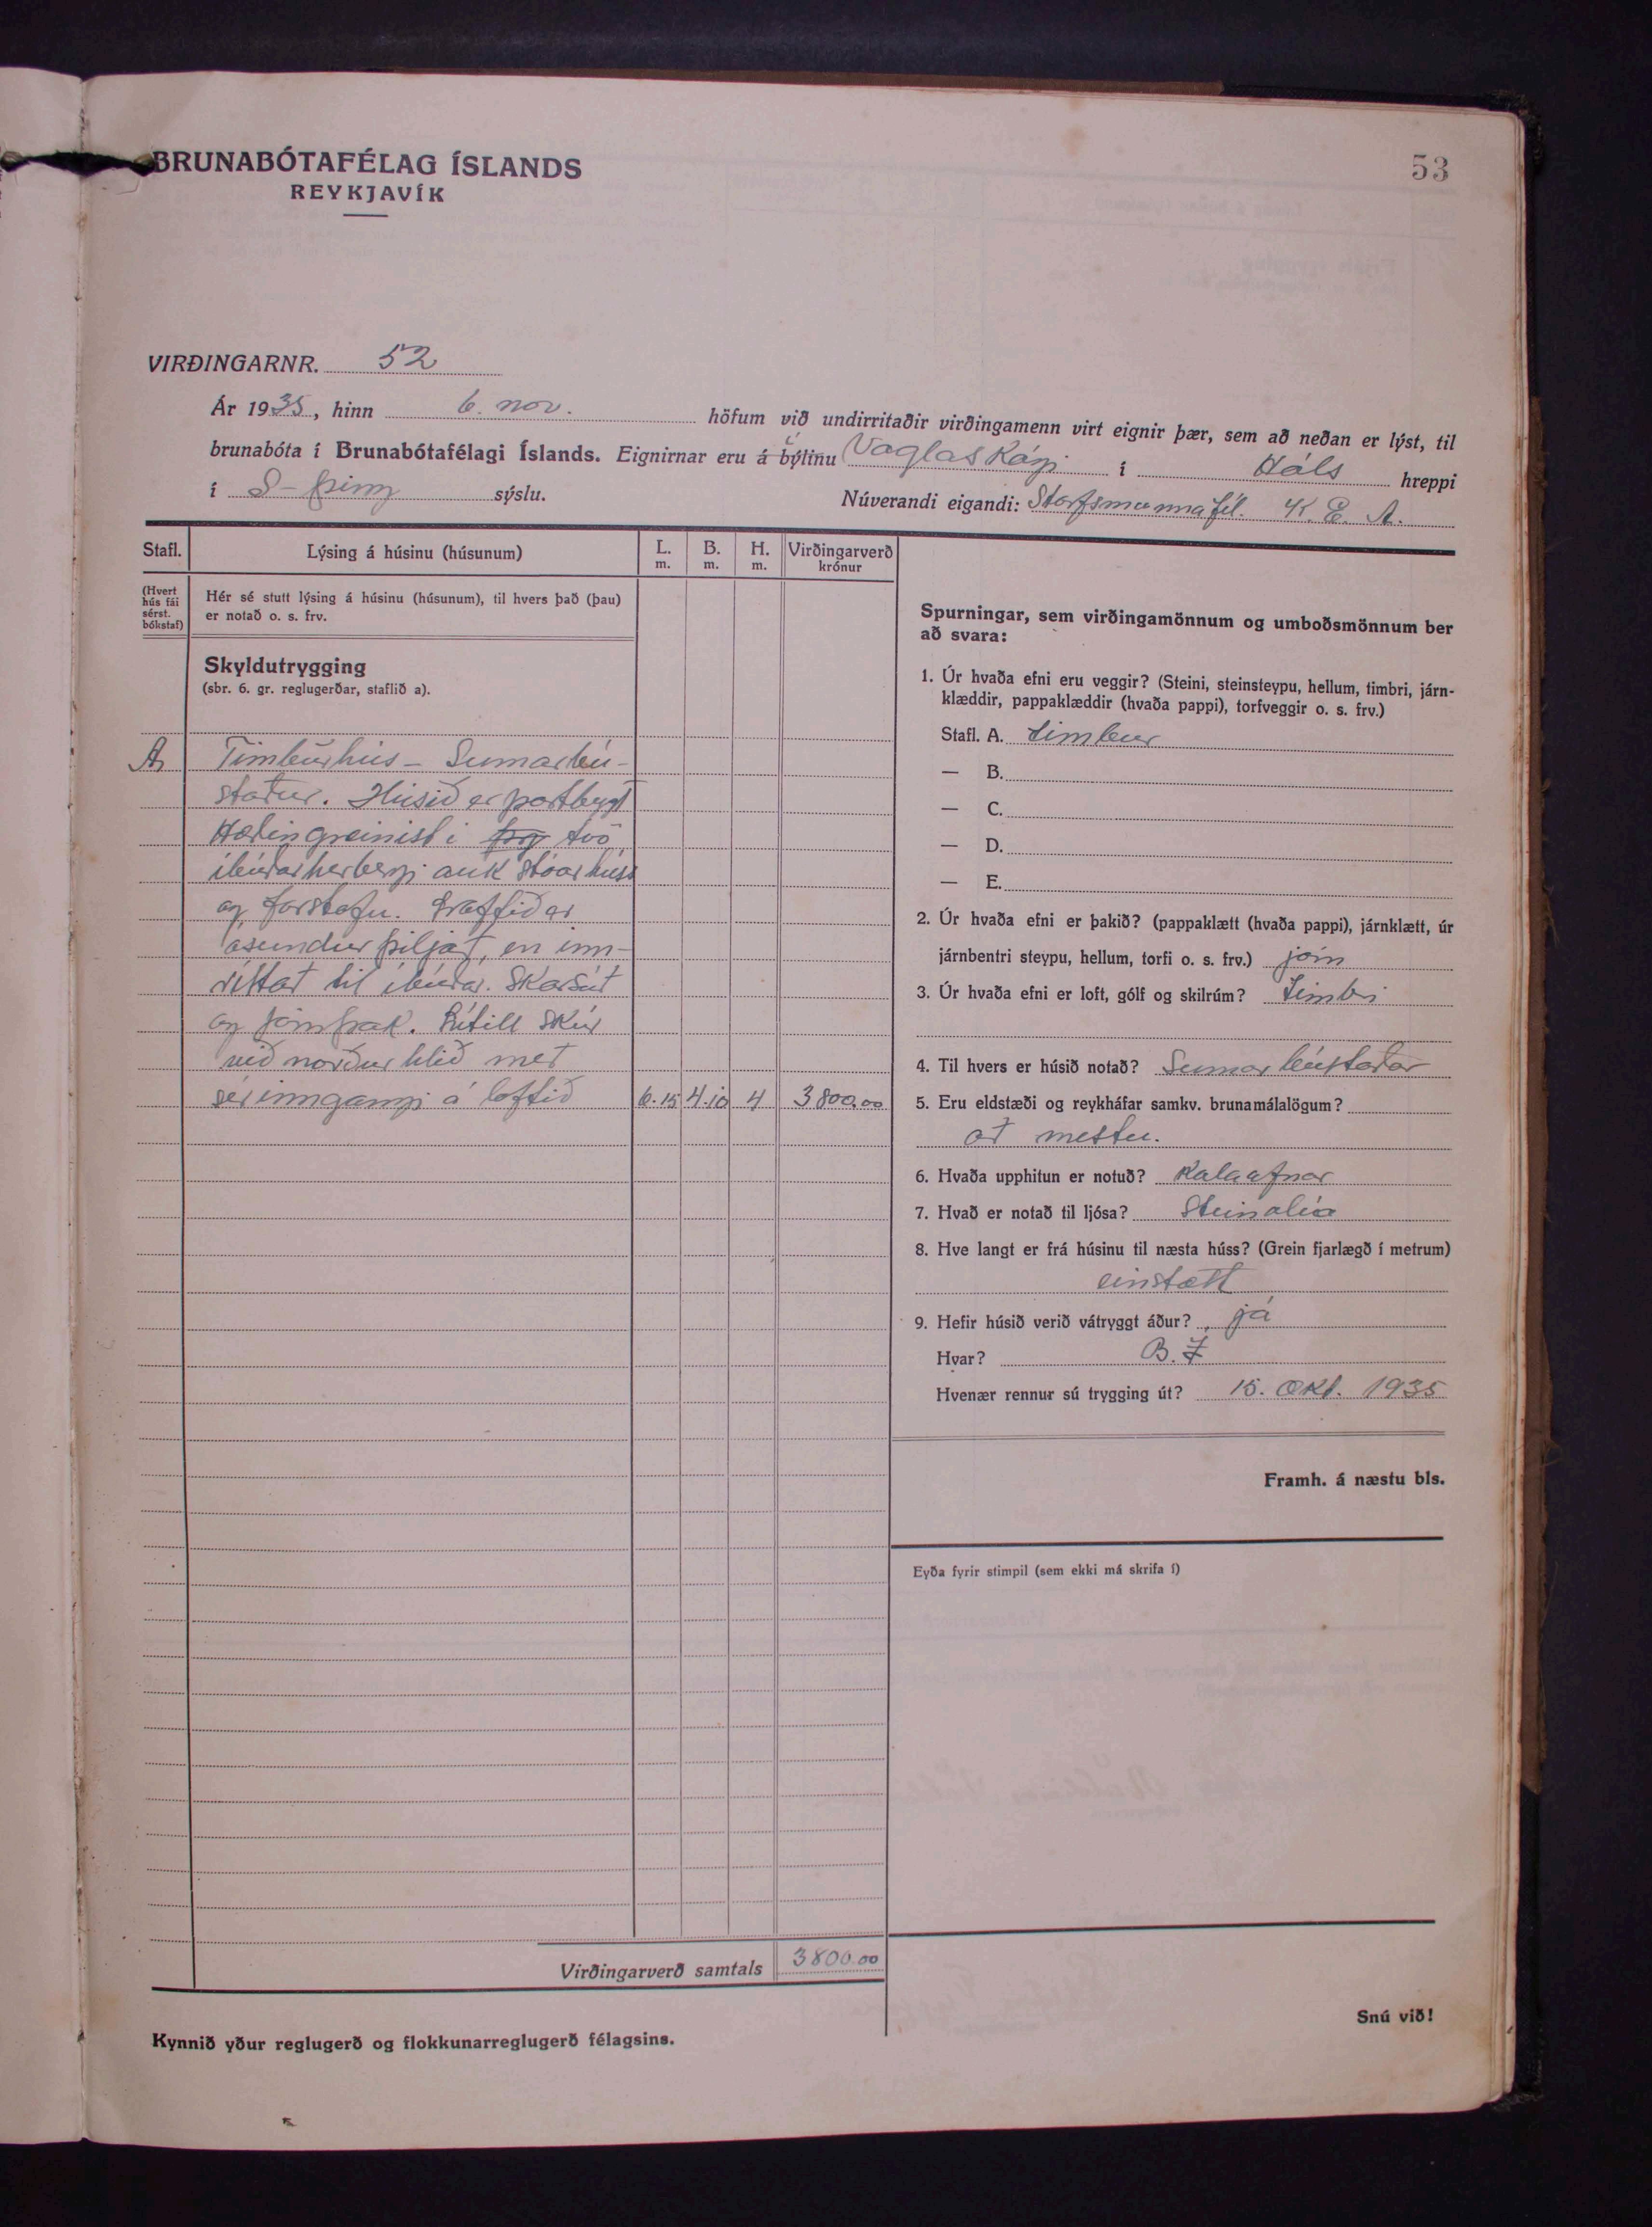 BRUNABÓTAFÉLAG ÍSLANDS
REYKJAVÍK
53
VIRÐINGARNR. 52
Ár 1935, hinn 6. nov. höfum við undirritaðir virðingamenn virt eignir þær, sem að neðan er lýst, til
brunabóta í Brunabótafélagi Íslands. Eignirnar eru á býlinu í Vaglaskógi í Háls hreppi
í S-Þing sýslu. Núverandi eigandi: Starfsmannafél. K. E. A.
Stafl.
Lýsing á húsinu (húsunum)
L. m.
B. m.
H. m.
Virðingarverð krónur
(Hvert hús fái sérst. bókstaf)
Hér sé stutt lýsing á húsinu (húsunum), til hvers það (þau)
er notað o. s. frv.
Skyldutrygging
(sbr. 6. gr. reglugerðar, staflið a).
A Timburhús - Sumarbú-
staður. Húsið er portbygt
Hæðin greinist í tvö
íbúðarherbergi auk stóarhúss
og forstofu. Loftið er
ósundur þiljað, en inn-
réttað til íbúðar. Skarsúð
og járnþak. Lítill skúr
við norður hlið með
sér inngangi á loftið 6.15 4.10 4 3800.00
Virðingarverð samtals 3800.00
Kynnið yður reglugerð og flokkunarreglugerð félagsins.
Spurningar, sem virðingamönnum og umboðsmönnum ber
að svara:
1. Úr hvaða efni eru veggir? (Steini, steinsteypu, hellum, timbri, járn-
klæddir, pappaklæddir (hvaða pappi), torfveggir o. s. frv.)
Stafl. A. timbur
— B.
— C.
— D.
— E.
2. Úr hvaða efni er þakið? (pappaklætt (hvaða pappi), járnklætt, úr
járnbentri steypu, hellum, torfi o. s. frv.) járn
3. Úr hvaða efni er loft, gólf og skilrúm? timbri
4. Til hvers er húsið notað? Sumarbústaðar
5. Eru eldstæði og reykháfar samkv. brunamálalögum?
að mestu.
6. Hvaða upphitun er notuð? Kolaofnar
7. Hvað er notað til ljósa? Steinolía
8. Hve langt er frá húsinu til næsta húss? (Grein fjarlægð í metrum)
einstætt
9. Hefir húsið verið vátryggt áður? já
Hvar? B. Í
Hvenær rennur sú trygging út? 15. okt. 1935
Framh. á næstu bls.
Eyða fyrir stimpil (sem ekki má skrifa í)
Snú við!